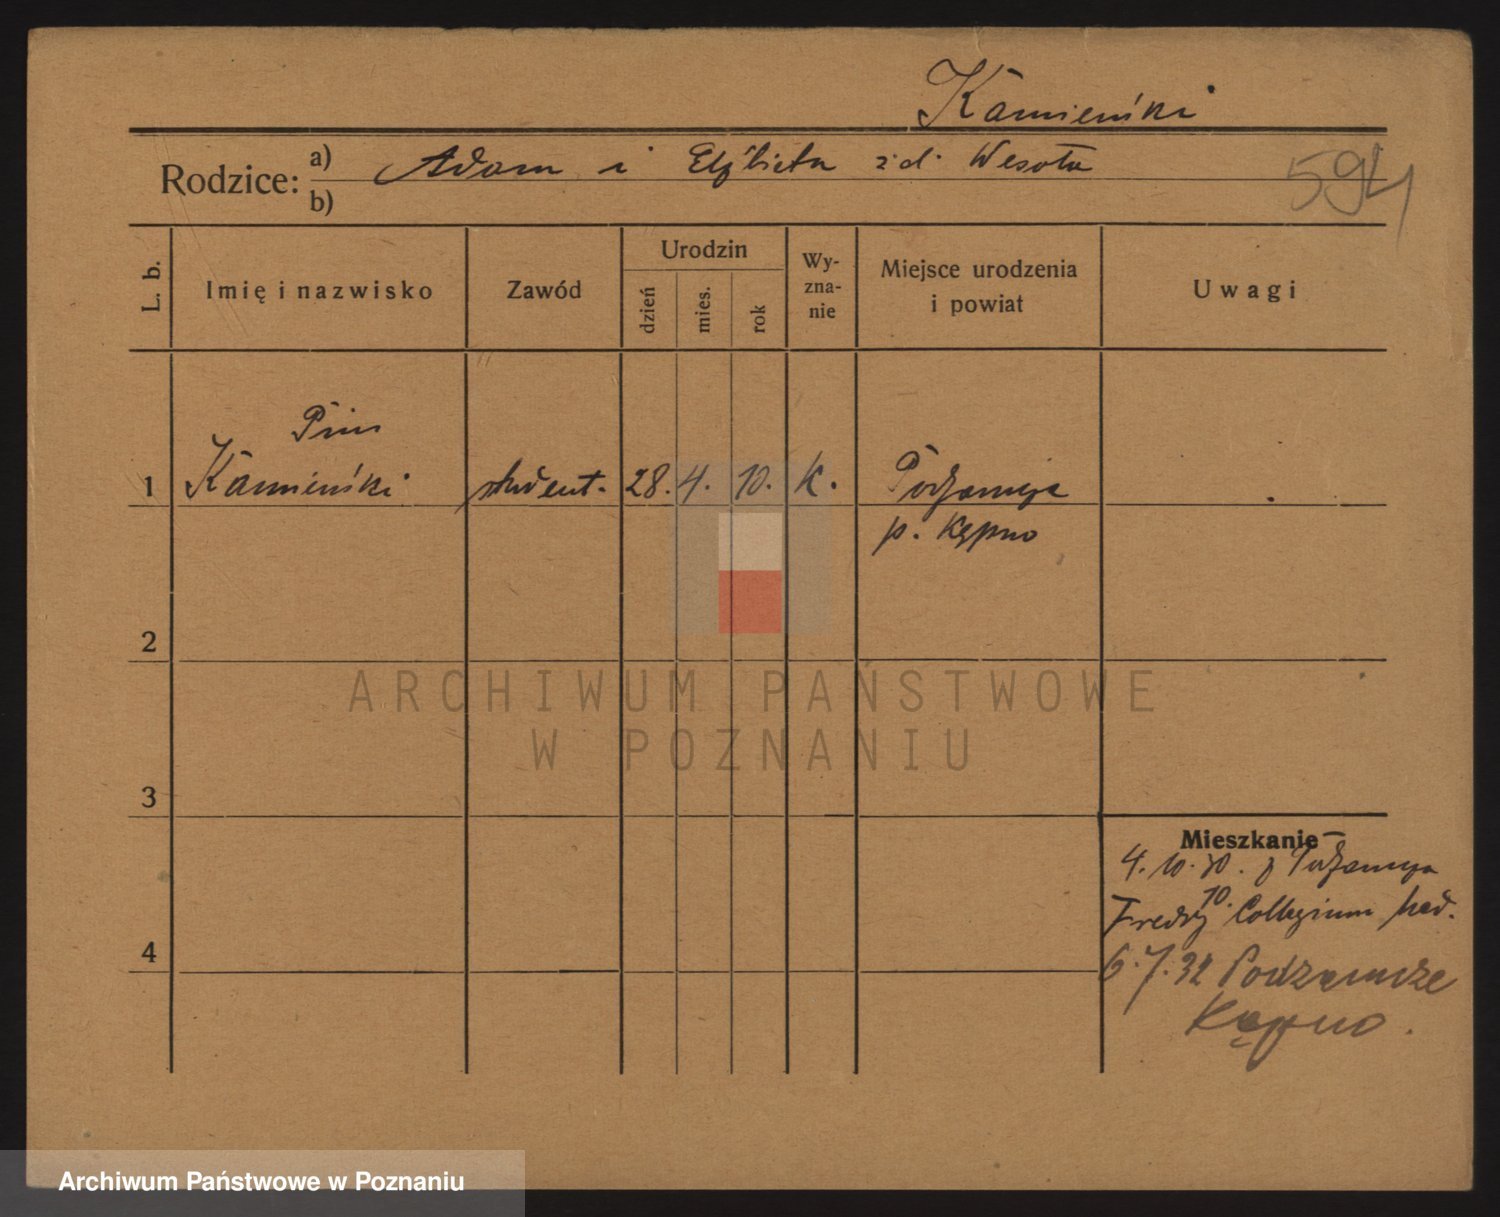 Kamieński
Rodzice: a) Adam i Elżbieta z d. Wesoła
b)
594
L. b. Imię i nazwisko Zawód Urodzin dzień mies. rok Wyzna-nie Miejsce urodzenia i powiat Uwagi
Pius
1 Kamieński student. 28. 4. 10. K. Podzamcze
p. Kępno
2
ARCHIWUM PAŃSTWOWE
W POZNANIU
3
Mieszkanie
4. 10. 30. z Podzamcza
Fredry 10. Collegium Med.
4
6.7.32 Podzamcze
Kępno.
Archiwum Państwowe w Poznaniu